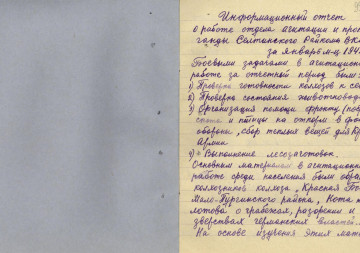 Информационный отчет
о работе отдела агитации и проп
ганды Селтинского Райкома ВК
за январь м-ц 194
Боевыми задачами в агитацион
работе за отчетный период были
1) Проверка готовности колхозов к се
2) Проверка состояния животновод
3) Организация помощи фронту
скота и птицы на откорм в фон
обороны, сбор теплых вещей для Кр
Армии
4) Выполнение лесозаготовок.
Основным материалом в агитацион
работе среди населения были обра
колхозников колхоза "Красная
Мало-Пургинского района, Нота
лотова о грабежах, разорении и
зверствах германских властей
На основе изучения этих мат